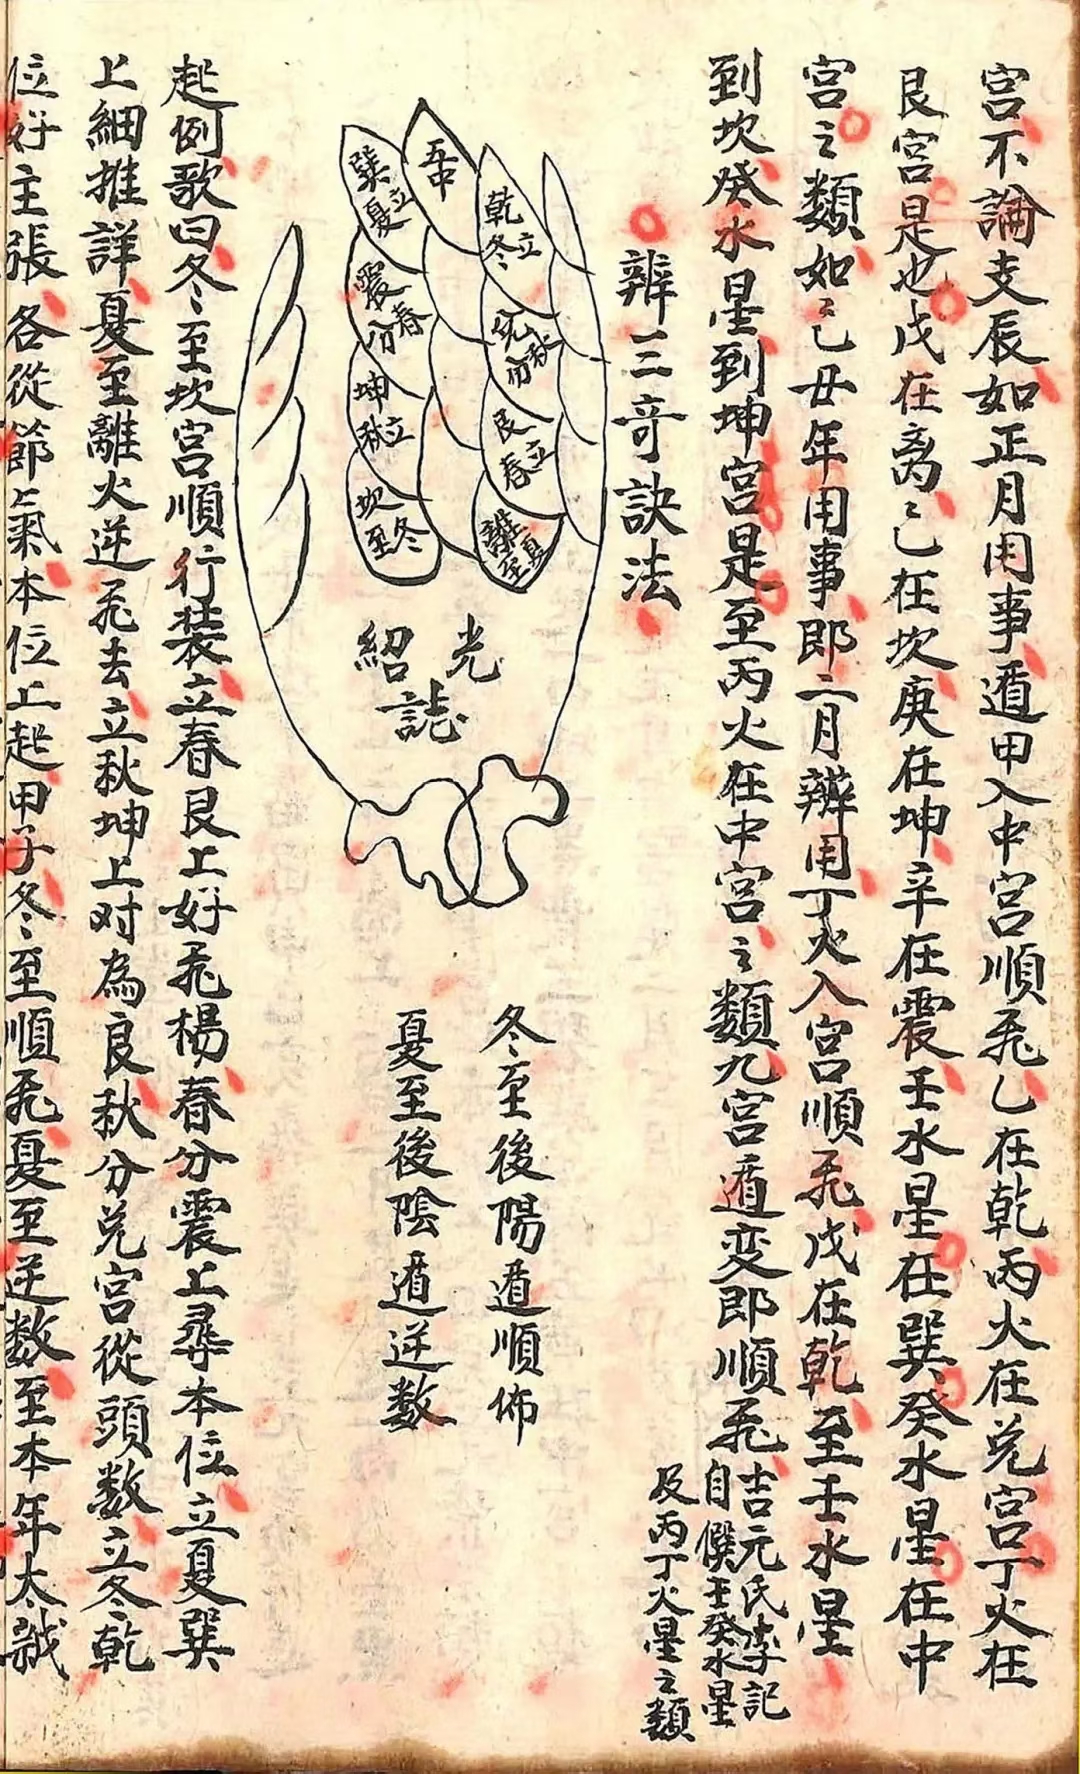 宫不論支辰如正月用事遁甲入中宫順飛乙在乾丙火在兑宫丁火在
艮宫是也戊在离己在坎庚在坤辛在震壬水星在巽癸水星在中
宫之類如己丑年用事即二月辨用丁火入宫順飛戊在乾至壬水星
到坎癸水星到坤宫是至丙火在中宫之類九宫遁变即順飛
吉元氏李記
自僎壬癸水星
及丙丁火星之類
辨三竒訣法
巽立夏
五中
乾立冬
震春分
兑秋分
坤立秋
艮立春
坎冬至
離夏至
光紹誌
冬至後陽遁順佈
夏至後陰遁逆数
起例歌曰冬至坎宫順行装立春艮上好飛楊春分震上尋本位立夏巽
上細推詳夏至離火逆飛去立秋坤上对為良秋分兑宫從頭数立冬乾
位好主張各從節氣本位上起甲子冬至順飛夏至逆数至本年太歲